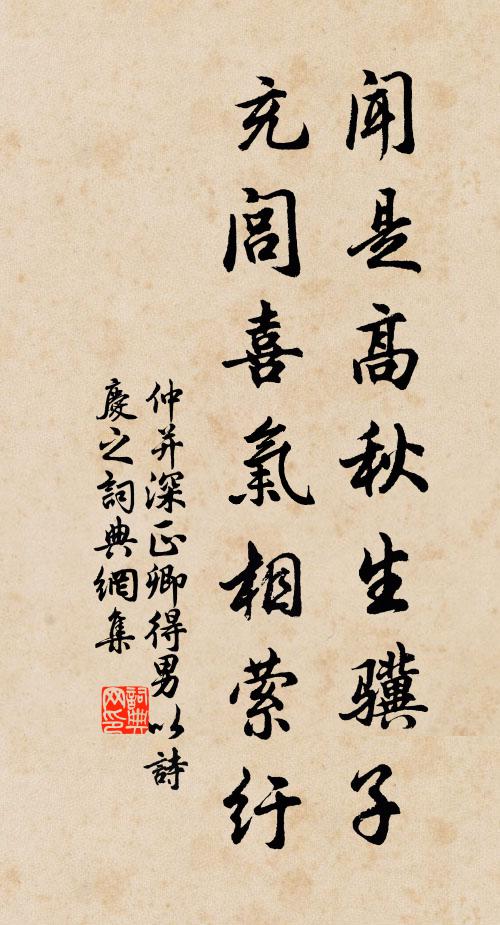 闻是高秋生骥子
充闾喜氣相萦纡
仲并深正卿得男以詩
慶之詞典網集
詞典
网印